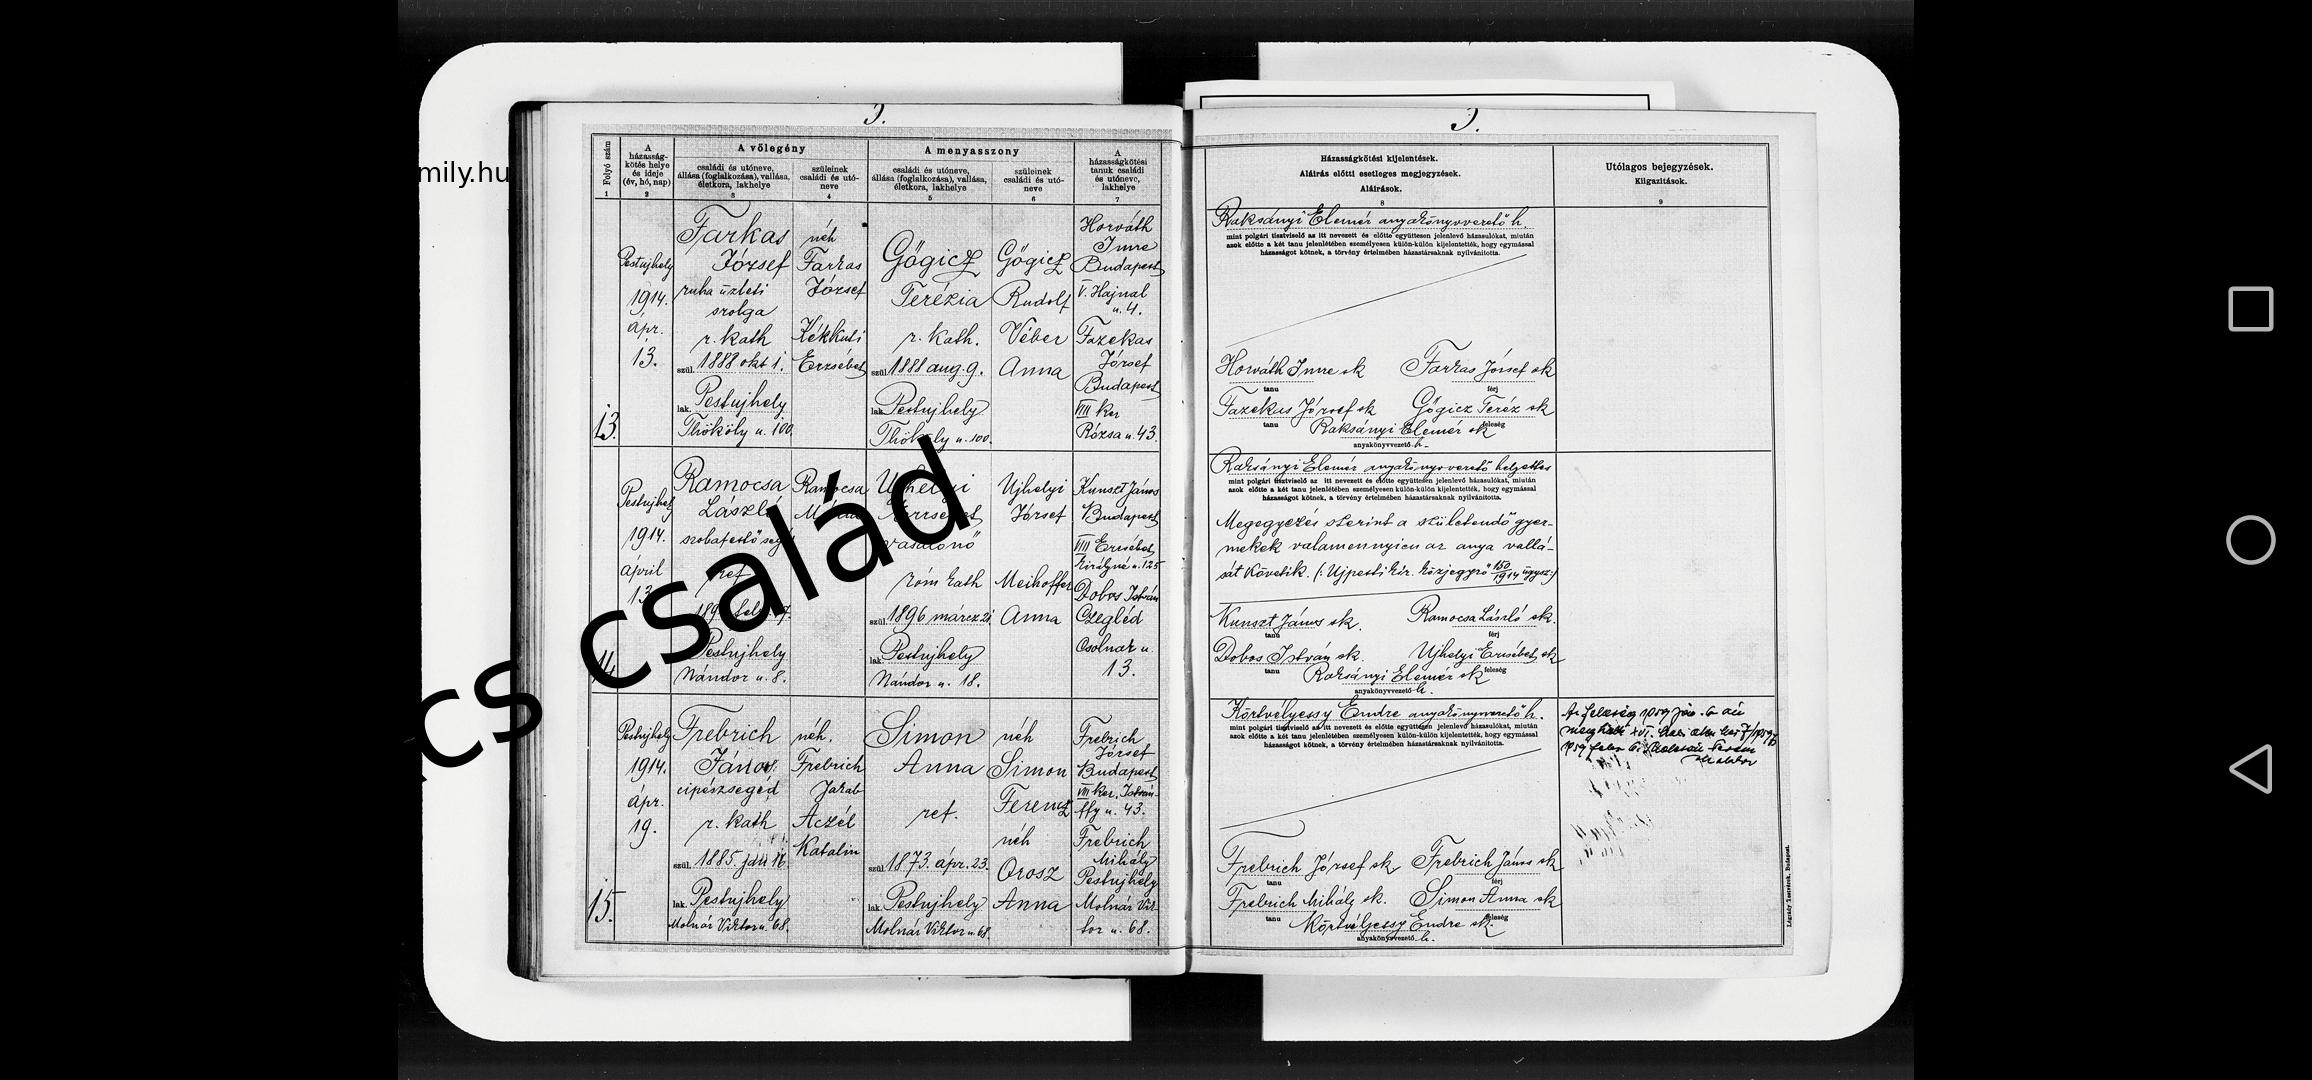 5.
5.
mily.hu
cs család
Folyó szám
A házasság-
kötés helye
és ideje
(év, hó, nap)
A vőlegény
családi és utóneve,
állása (foglalkozása), vallása,
életkora, lakhelye
szüleinek
családi és utó-
neve
A menyasszony
családi és utóneve,
állása (foglalkozása), vallása,
életkora, lakhelye
szüleinek
családi és utó-
neve
A
házasságkötési
tanuk családi
és utóneve,
lakhelye
1 2 3 4 5 6 7
Házasságkötési kijelentések.
Aláírás előtti esetleges megjegyzések.
Aláírások.
8
Utólagos bejegyzések.
Kiigazítások.
9
13.
Pestujhely
1914.
ápr.
13.
Farkas
József
ruha üzleti
szolga
r. kath
szül. 1888 okt 1.
lak. Pestujhely
Thököly u. 100.
néh
Farkas
József
Kékkuti
Erzsébet
Gőgicz
Terézia
r. kath.
szül. 1888 aug. 9.
lak. Pestujhely
Thököly u. 100.
Gőgicz
Rudolf
Véber
Anna
Horváth
Imre
Budapest
V. Hajnal
u. 4.
Fazekas
József
Budapest
VIII ker
Rózsa u. 43.
Raksányi Elemér anyakönyvvezető h.
mint polgári tisztviselő az itt nevezett és előtte együttesen jelenlevő házasulókat, miután
azok előtte a két tanu jelenlétében személyesen külön-külön kijelentették, hogy egymással
házasságot kötnek, a törvény értelmében házastársaknak nyilvánította.
Horváth Imre sk Farkas József sk
tanu férj
Fazekas József sk Gőgicz Teréz sk
tanu feleség
Raksányi Elemér sk
anyakönyvvezető h.
14.
Pestujhely
1914.
április
13.
Ramocsa
László
szobafestő segéd
ref
Pestujhely
Nándor u. 8.
Ramocsa
Ujhelyi
Erzsébet
vasalónő
róm kath
szül. 1896 márcz 21.
lak. Pestujhely
Nándor u. 18.
Ujhelyi
József
Meihoffer
Anna
Kunszt János
Budapest
VIII Erzsébet
királyné u. 125
Dobos István
Czegléd
Csolnak u.
13.
Raksányi Elemér anyakönyvvezető helyettes
mint polgári tisztviselő az itt nevezett és előtte együttesen jelenlevő házasulókat, miután
azok előtte a két tanu jelenlétében személyesen külön-külön kijelentették, hogy egymással
házasságot kötnek, a törvény értelmében házastársaknak nyilvánította.
Megegyezés szerint a születendő gyer-
mekek valamennyien az anya vallá-
sát követik. (: Ujpesti kir. közjegyző 150/1914 ügysz:)
Kunszt János sk. Ramocsa László sk.
tanu férj
Dobos István sk. Ujhelyi Erzsébet sk
tanu feleség
Raksányi Elemér sk
anyakönyvvezető h.
15.
Pestujhely
1914.
ápr.
19.
Frebrich
János
cipészsegéd
r. kath
szül. 1885. jan 16.
lak. Pestujhely
Molnár Viktor u. 68.
néh.
Frebrich
Jakab
Aczél
Katalin
Simon
Anna
ref.
szül. 1873. ápr. 23.
lak. Pestujhely
Molnár Viktor u. 68.
néh
Simon
Ferencz
néh
Orosz
Anna
Frebrich
József
Budapest
VIII ker. István-
ffy u. 43.
Frebrich
Mihály
Pestujhely
Molnár Vik
tor u. 68.
Körtvélyessy Endre anyakönyvvezető h.
mint polgári tisztviselő az itt nevezett és előtte együttesen jelenlevő házasulókat, miután
azok előtte a két tanu jelenlétében személyesen külön-külön kijelentették, hogy egymással
házasságot kötnek, a törvény értelmében házastársaknak nyilvánította.
Frebrich József sk Frebrich János sk
tanu férj
Frebrich Mihály sk. Simon Anna sk
tanu feleség
Körtvélyessy Endre sk.
anyakönyvvezető h.
Az feleség
meghalt XVI.
Légrády Testvérek, Budapest.